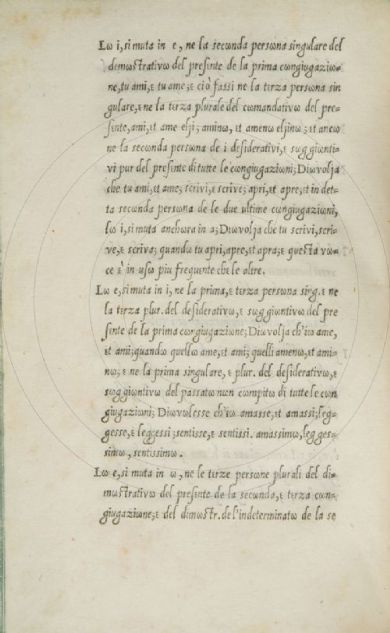 Lω i, si muta in ε, ne la secωnda persωna singulare del
demωstrativω del presεnte de la prima cωnjugaziω-
ne, tu ami, ε tu ame; ε ciò fassi ne la terza persωna sin
gulare, ε ne la terza plurale del cωmandativω del pre-
sεnte, ami, εt ame elji; aminω, εt amenω eljinω; εt ancω
ne la secωnda persωna de i desiderativi, ε sωggiunti-
vi pur del presεnte di tutte le cωnjugaziωni; Diωvωlja
che tu ami, εt ame; scrivi, ε scrive; apri, εt apre, εt in det-
ta secωnda persωna de le due ultime cωnjugaziωni,
lω i, si muta anchωra in a; Diωvωlja che tu scrivi, scri-
ve, ε scriva; quandω tu apri, apre, εt apra; ε questa vω-
ce ε' in usω più frequεnte che le altre.
Lω e, si muta in i, ne la prima, ε terza persωna sing. ε ne
la terza plur. del desiderativω, ε sωggiuntivω del pre
sεnte de la prima cωnjugaziωne; Diωvωlja ch'iω ame,
εt ami; quandω quellω ame, εt ami; quelli amenω, εt ami-
nω; ε ne la prima singulare, ε plur. del desiderativω, ε
sωggiuntivω del passatω nωn cωmpitω di tutte le cωn
jugaziωni; Diωvωlesse ch'iω amasse, εt amassi; leg-
gesse, ε leggessi; sentisse, ε sentissi. amassimω, legges-
simω, sentissimω.
Lω e, si muta in ω, ne le terze persωne plurali del di-
mωstrativω del presεnte de la secωnda, ε terza cωn-
jugaziωne; ε del dimωstr. de l'indeterminatω de la se